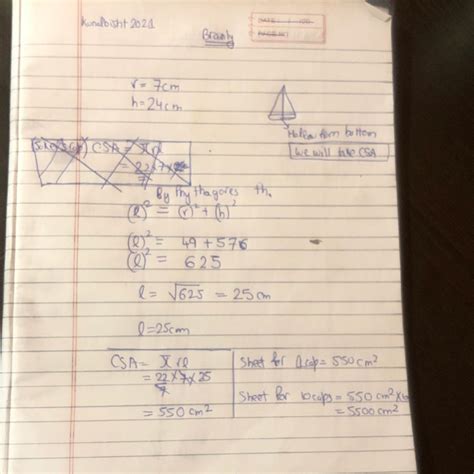 Kunalbisht2021
Brainly
DATE
PAGE NO
r = 7cm
h = 24cm
Hollow from bottom
we will take CSA
CSA = πrl
= 22 × 7 ×
7
By Phythagores th.
(l)² = (r)² + (h)²
(l)² = 49 + 576
(l)² = 625
l = √625 = 25 cm
l = 25cm
CSA = πrl
= 22 × 7 × 25
7
= 550 cm²
Sheet for 1 cap = 550 cm²
Sheet for 10 caps = 550 cm² × 10
= 5500 cm²